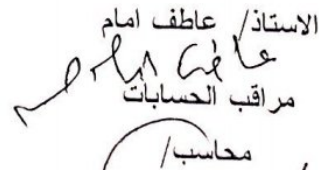 الاستاذ/ عاطف امام
عاطف امام
مراقب الحسابات
محاسب/